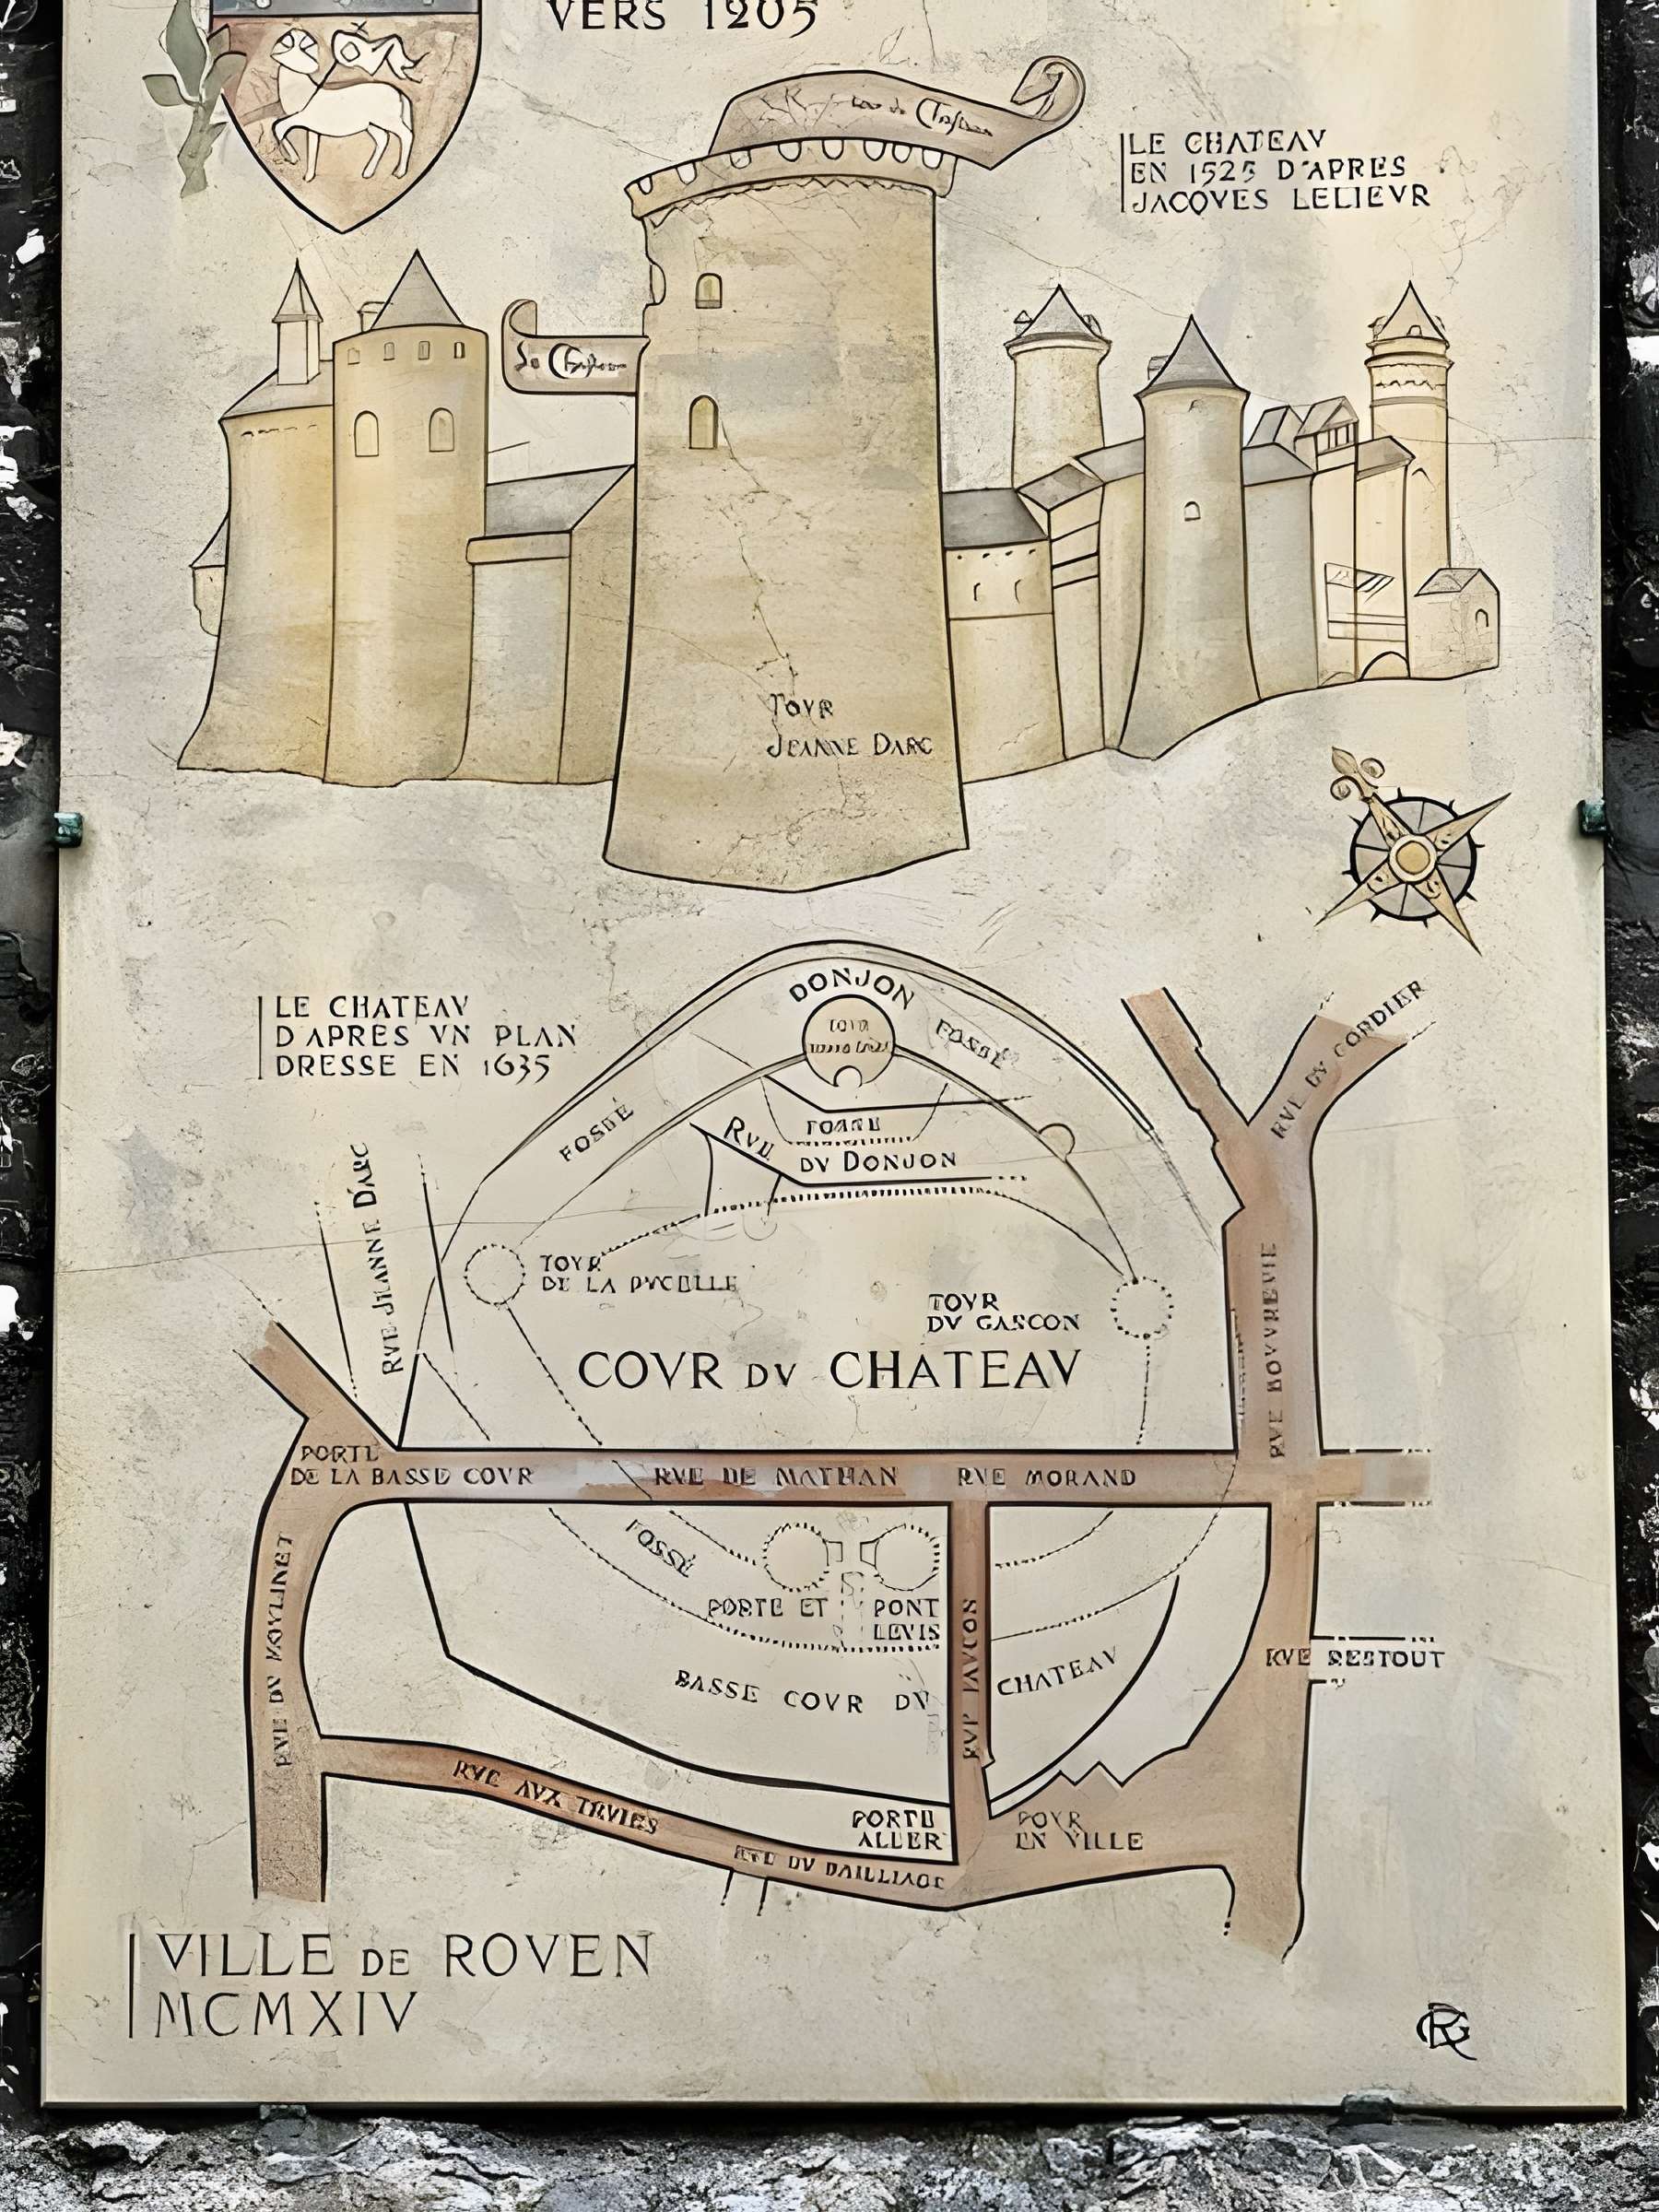 VERS 1205
LE CHATEAV
EN 1525 D'APRES
JACQVES LELIEVR
TOVR
JEANNE DARC
LE CHATEAV
D'APRES VN PLAN
DRESSE EN 1635
DONJON
TOVR
FOSSÉ
FOSSÉ
RVE
DV DONJON
RVE JEANNE D'ARC
RVE DV CORDIER
TOVR
DE LA PVCELLE
TOVR
DV GASCON
COVR DV CHATEAV
RVE BOVVREVIE
PORTE
DE LA BASSE COVR
RVE DE MATHAN
RVE MORAND
FOSSÉ
PORTE ET PONT
LEVIS
RVE DV MOVLINET
BASSE COVR DV CHATEAV
RVE FAVCON
RVE RESTOUT
RVE AVX TRVIES
RVE DV BAILLIAGE
PORTE POVR
ALLER EN VILLE
VILLE DE ROVEN
MCMXIV